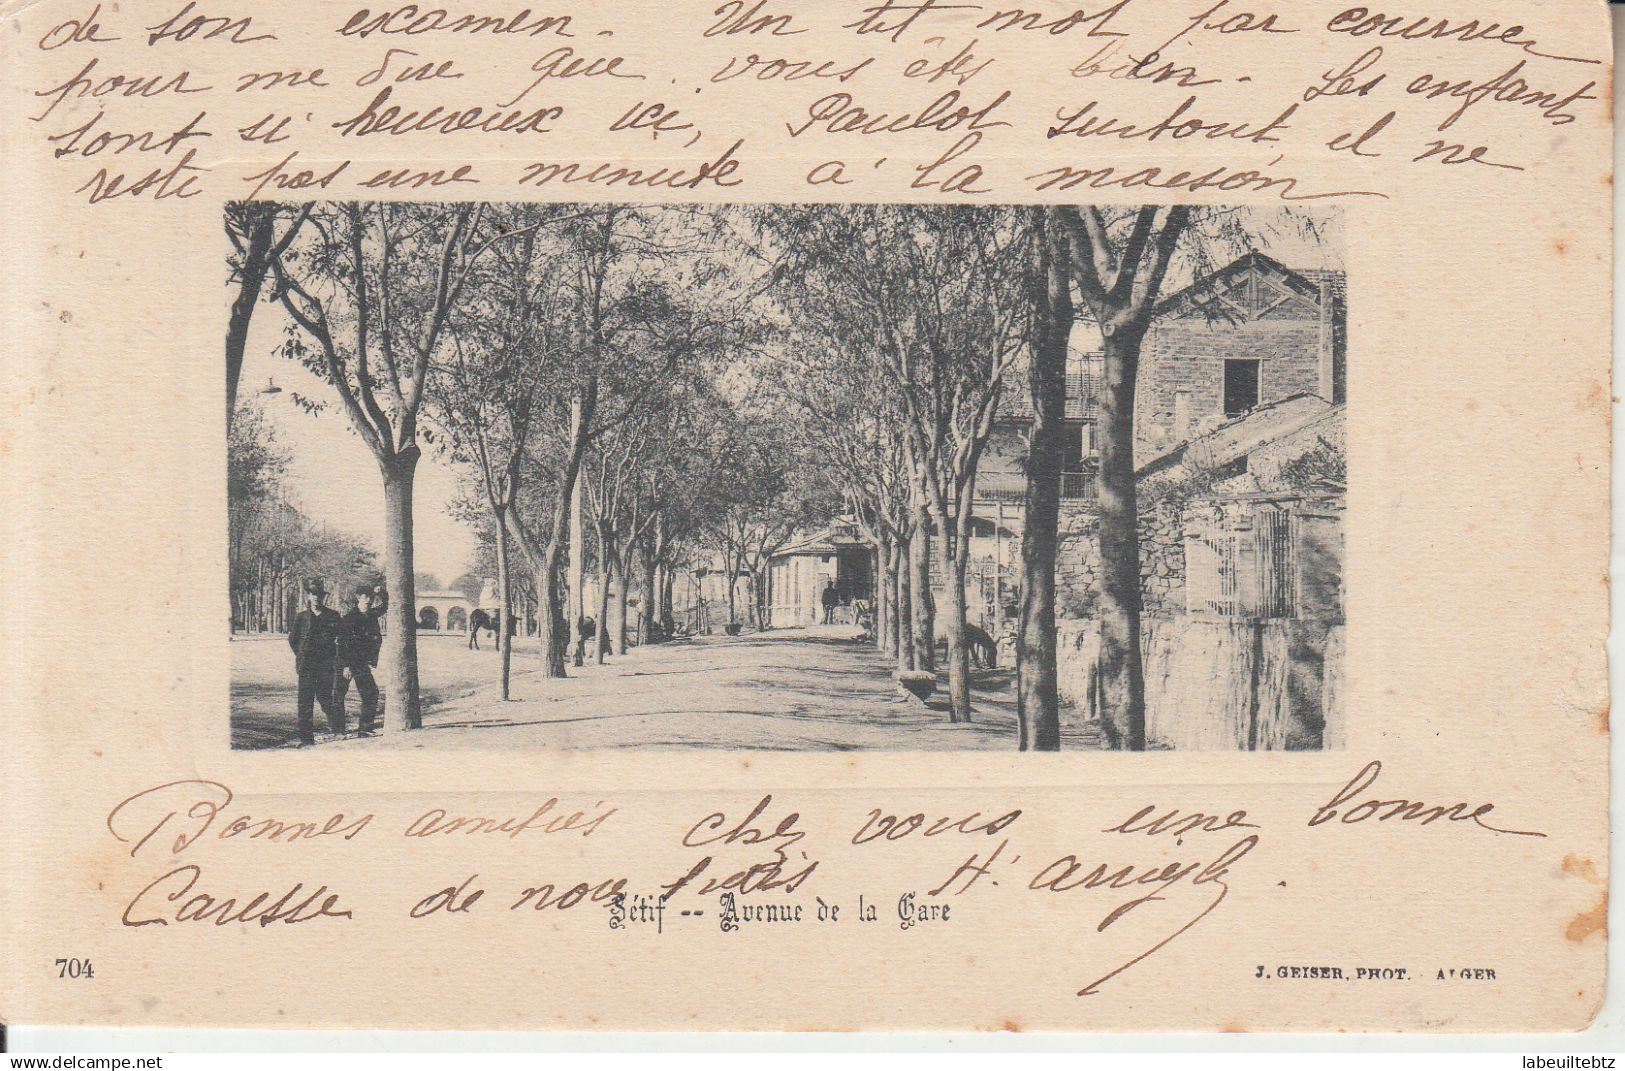 de son examen. Un tit mot par courrier
pour me dire que vous êtes bien. Les enfants
sont si heureux ici, Paulot surtout, il ne
reste pas une minute à la maison
Bonnes amitiés chez vous une bonne
Caresse de nous trois H. Arrighi.
Sétif -- Avenue de la Gare
704
J. GEISER, PHOT. - ALGER
www.delcampe.net
labeuiltebtz